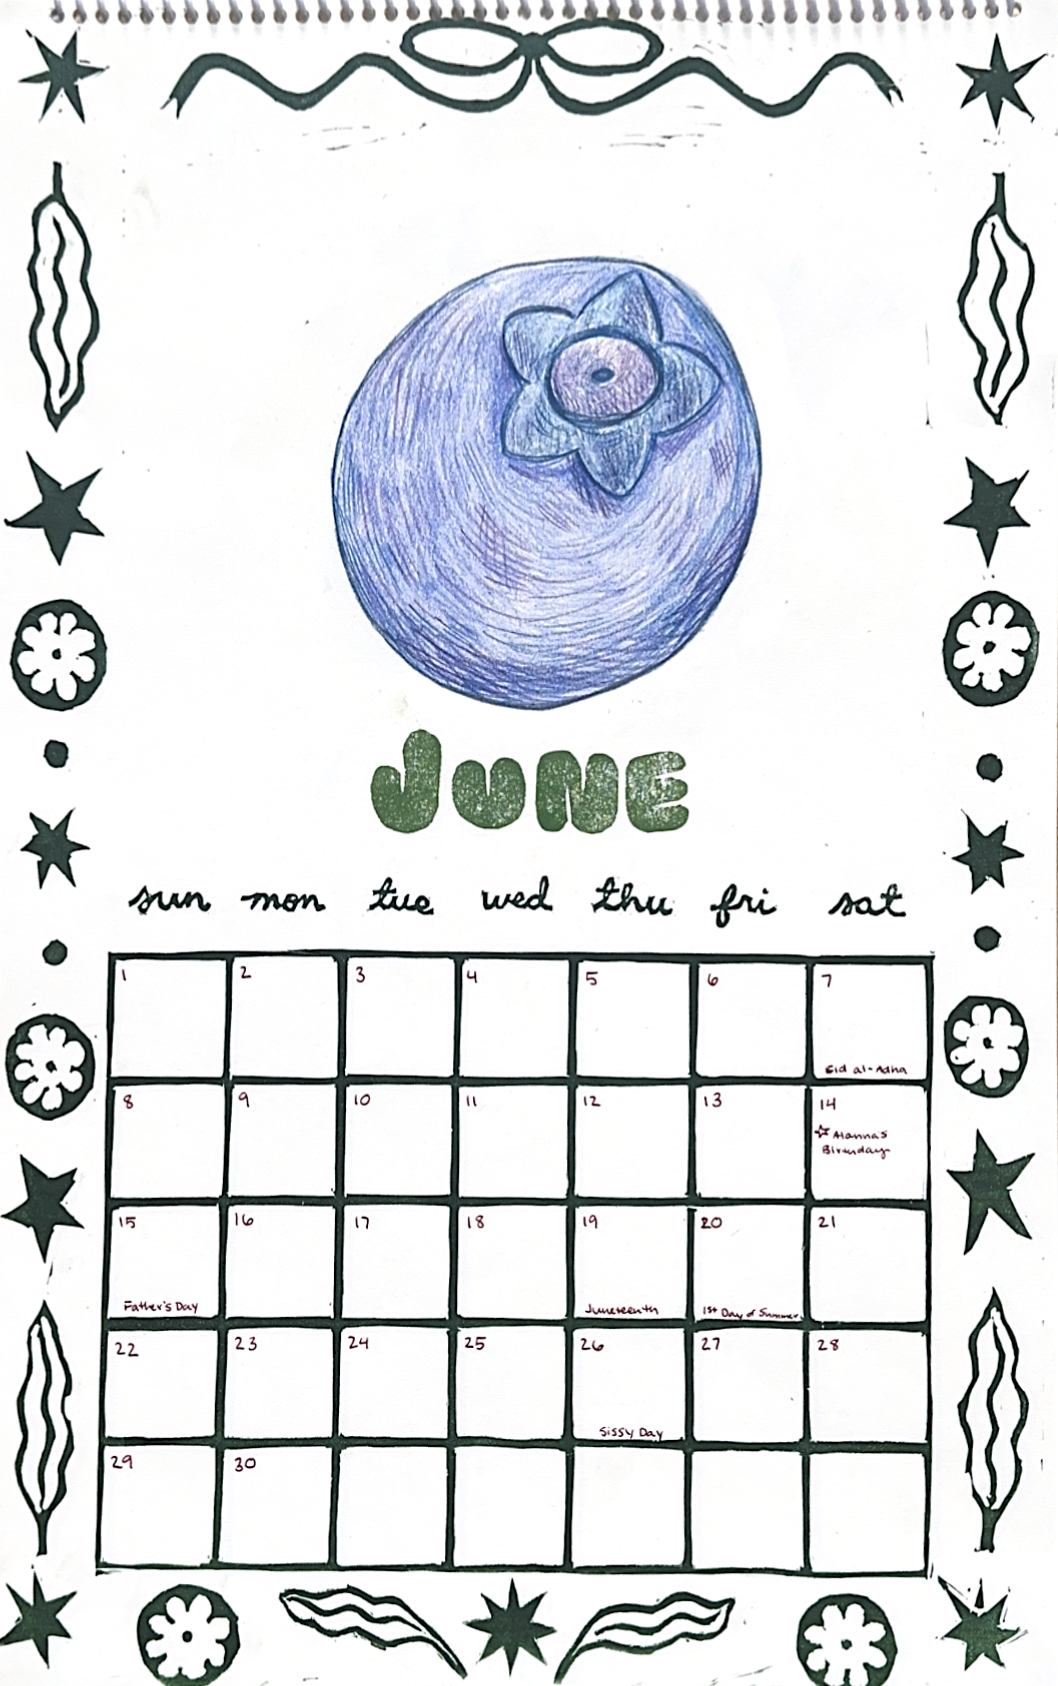 JUNE
sun mon tue wed thu fri sat
1 2 3 4 5 6 7
Eid al-Adha
8 9 10 11 12 13 14
☆ Alanna's
Birthday
15 16 17 18 19 20 21
Father's Day Juneteenth 1st Day of Summer
22 23 24 25 26 27 28
Sissy Day
29 30